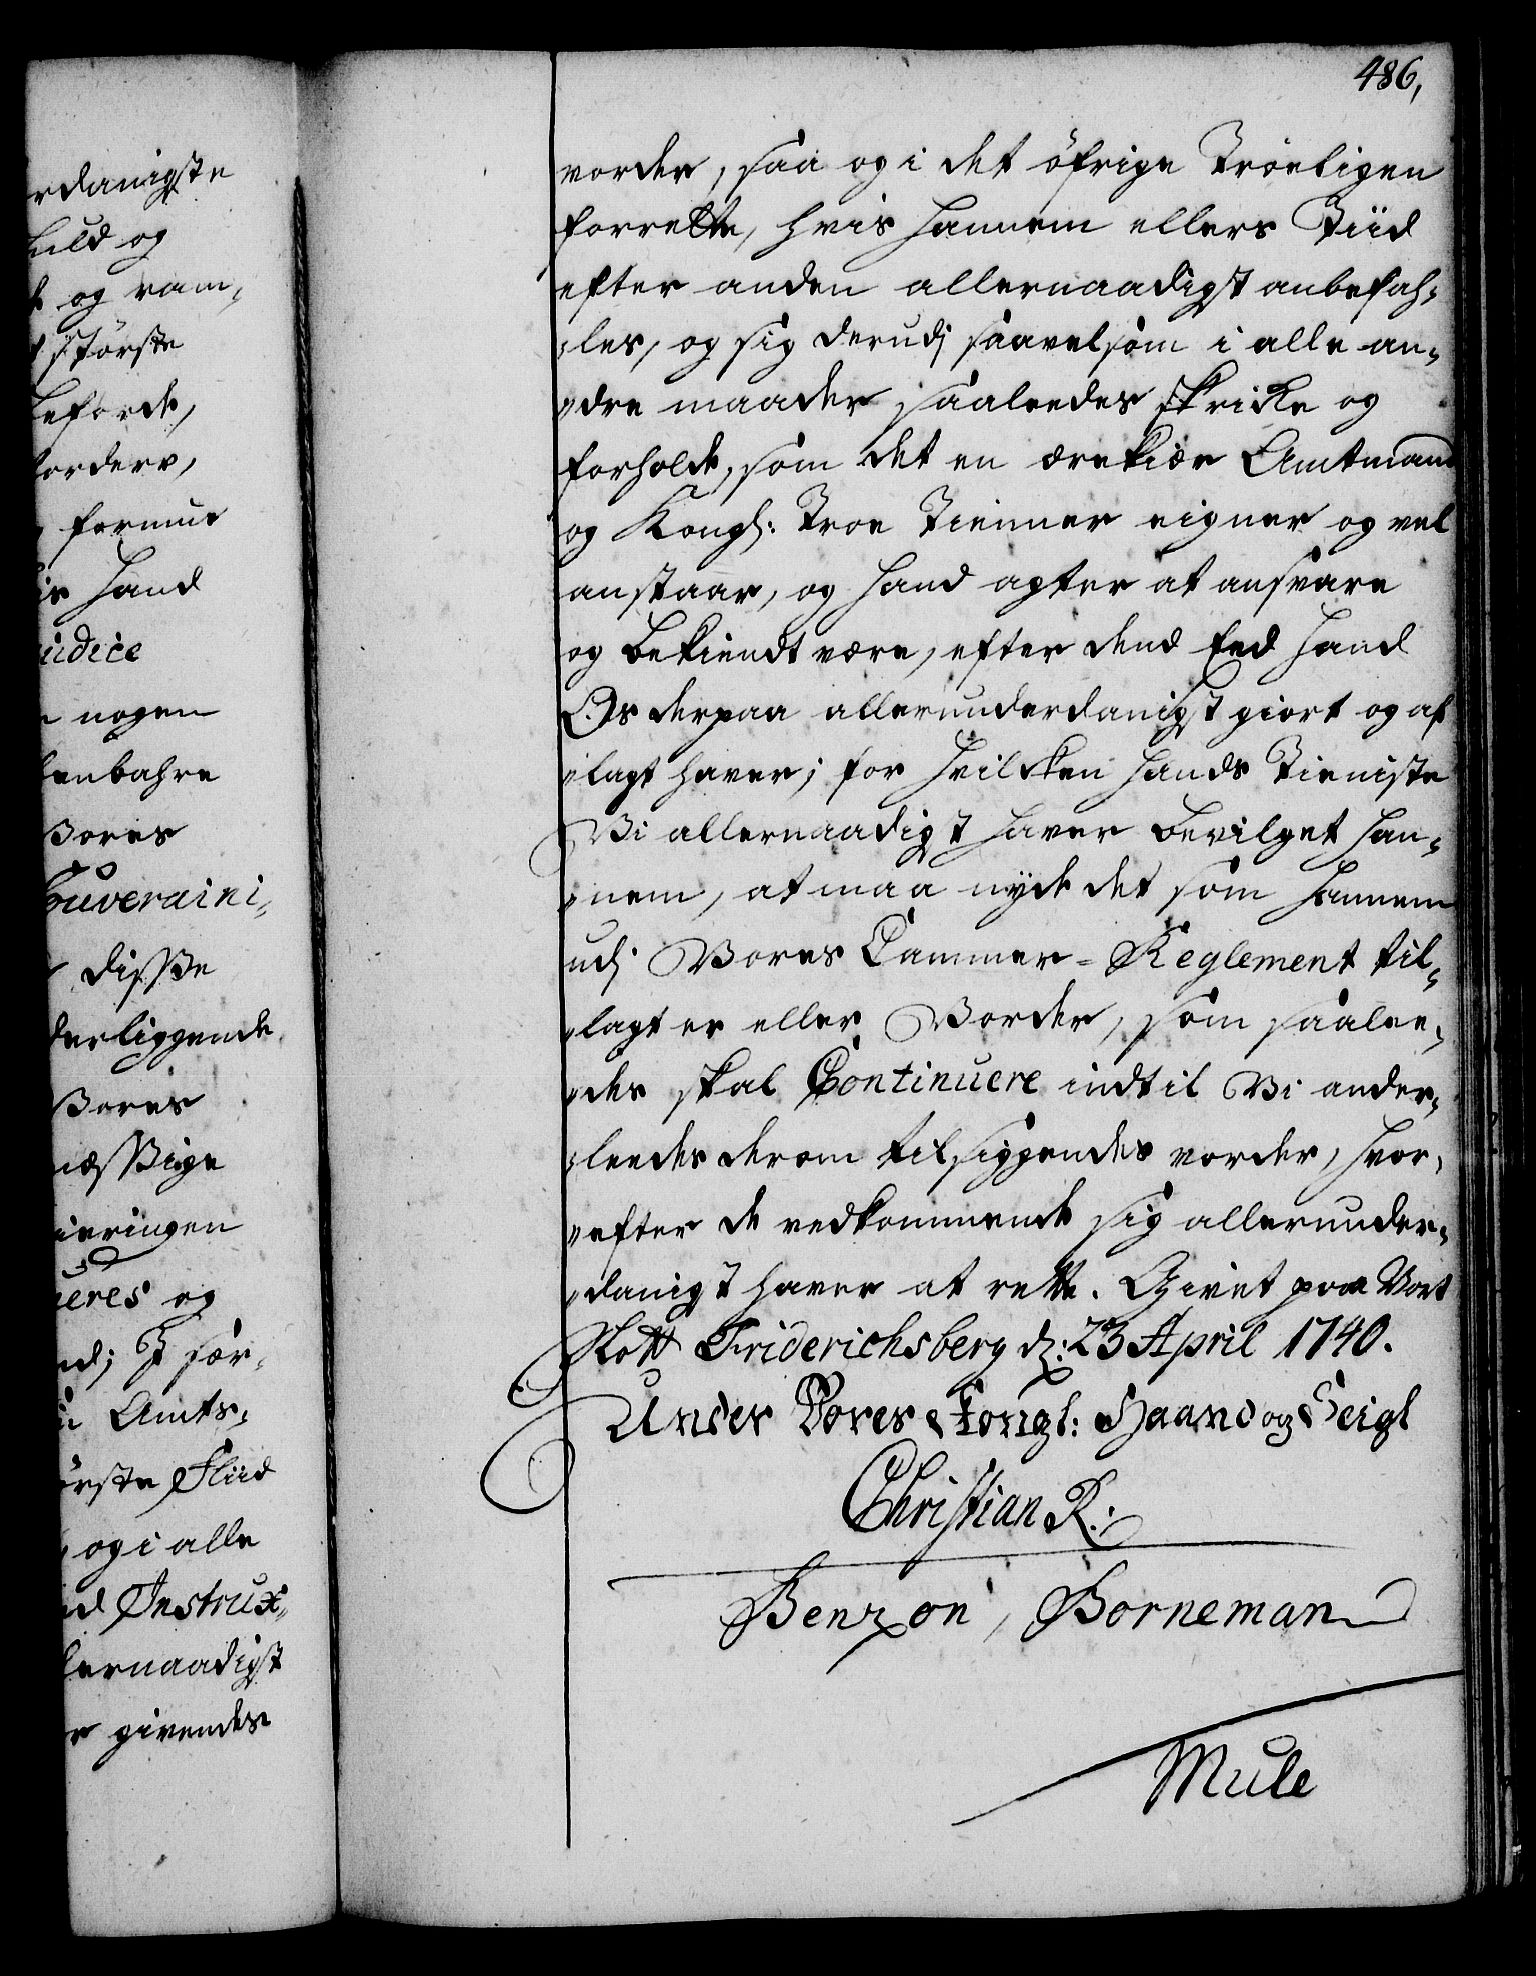 486,
rdanigste
huld og
og ram¸
største
beforde,
forderv,
formue
hand
judice
nogen
enbahre
Vores
Souveraini¸
disse
derliggende
Vores
mæssige
ieringen
og
I sær¸
Amts¸
ørste Fliid
og i alle
Instrux¸
lernaadigst
givendes
vorder, saa og i det öfrige Tröeligen
forrette, hvis hannem ellers Tiid
efter anden allernaadigst anbefah¸
¸les, og sig derudj saavelsom i alle an¸
¸dre maader saaleedes skicke og
forholde, som det en ærekiær Amtmand
og Kongl: Troe Tienner eigner og vel
anstaar, og hand agter at ansvare
og bekiendt være, efter dend Eed hand
Os derpaa allerunderdanigst giort og af
¸lagt haver; for hvilcken hands Tieniste
Vi allernaadigst haver bevilget han¸
¸nem, at maa nyde det som hannem
udj Vores Cammer=Reglement til¸
¸lagt er eller Vorder, som saalee¸
¸des skal Continuere indtil Vi ander¸
¸leedes derom tilsiggendes vorder, hvor¸
¸efter de vedkommende sig allerunder¸
¸danigst haver at rette. Givet paa Vort
Slott Friderichsberg d: 23 April 1740.
Under Vores Kongl: Haand og Seigl
Christian R:
Benzon, Borneman
Mule